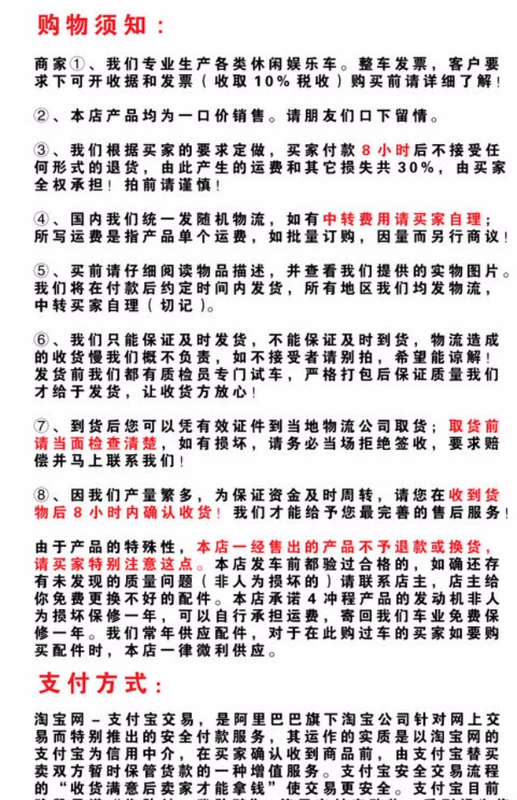 购物须知：
商家①、我们专业生产各类休闲娱乐车。整车发票，客户要
求下可开收据和发票（收取10%税收）购买前请详细了解！
②、本店产品均为一口价销售。请朋友们口下留情。
③、我们根据买家的要求定做，买家付款8小时后不接受任
何形式的退货，由此产生的运费和其它损失共30%，由买家
全权承担！拍前请谨慎！
④、国内我们统一发随机物流，如有中转费用请买家自理；
所写运费是指产品单个运费，如批量订购，因量而另行商议！
⑤、买前请仔细阅读物品描述，并查看我们提供的实物图片。
我们将在付款后约定时间内发货，所有地区我们均发物流，
中转买家自理（切记）。
⑥、我们只能保证及时发货，不能保证及时到货，物流造成
的收货慢我们概不负责，如不接受者请别拍，希望能谅解！
发货前我们都有质检员专门试车，严格打包后保证质量我们
才给于发货，让收货方放心！
⑦、到货后您可以凭有效证件到当地物流公司取货；取货前
请当面检查清楚，如有损坏，请务必当场拒绝签收，要求赔
偿并马上联系我们！
⑧、因我们产量繁多，为保证资金及时周转，请您在收到货
物后8小时内确认收货！我们才能给予您最完善的售后服务！
由于产品的特殊性，本店一经售出的产品不予退款或换货，
请买家特别注意这点。本店发车前都验过合格的，如确还存
有未发现的质量问题（非人为损坏的）请联系店主，店主给
你免费更换不好的配件。本店承诺4冲程产品的发动机非人
为损坏保修一年，可以自行承担运费，寄回我们车业免费保
修一年。我们常年供应配件，对于在此购过车的买家如要购
买配件时，本店一律微利供应。
支付方式：
淘宝网－支付宝交易，是阿里巴巴旗下淘宝公司针对网上交
易而特别推出的安全付款服务，其运作的实质是以淘宝网的
支付宝为信用中介，在买家确认收到商品前，由支付宝替买
卖双方暂时保管货款的一种增值服务。支付宝安全交易流程
的“收货满意后卖家才能拿钱”使交易更安全。支付宝目前